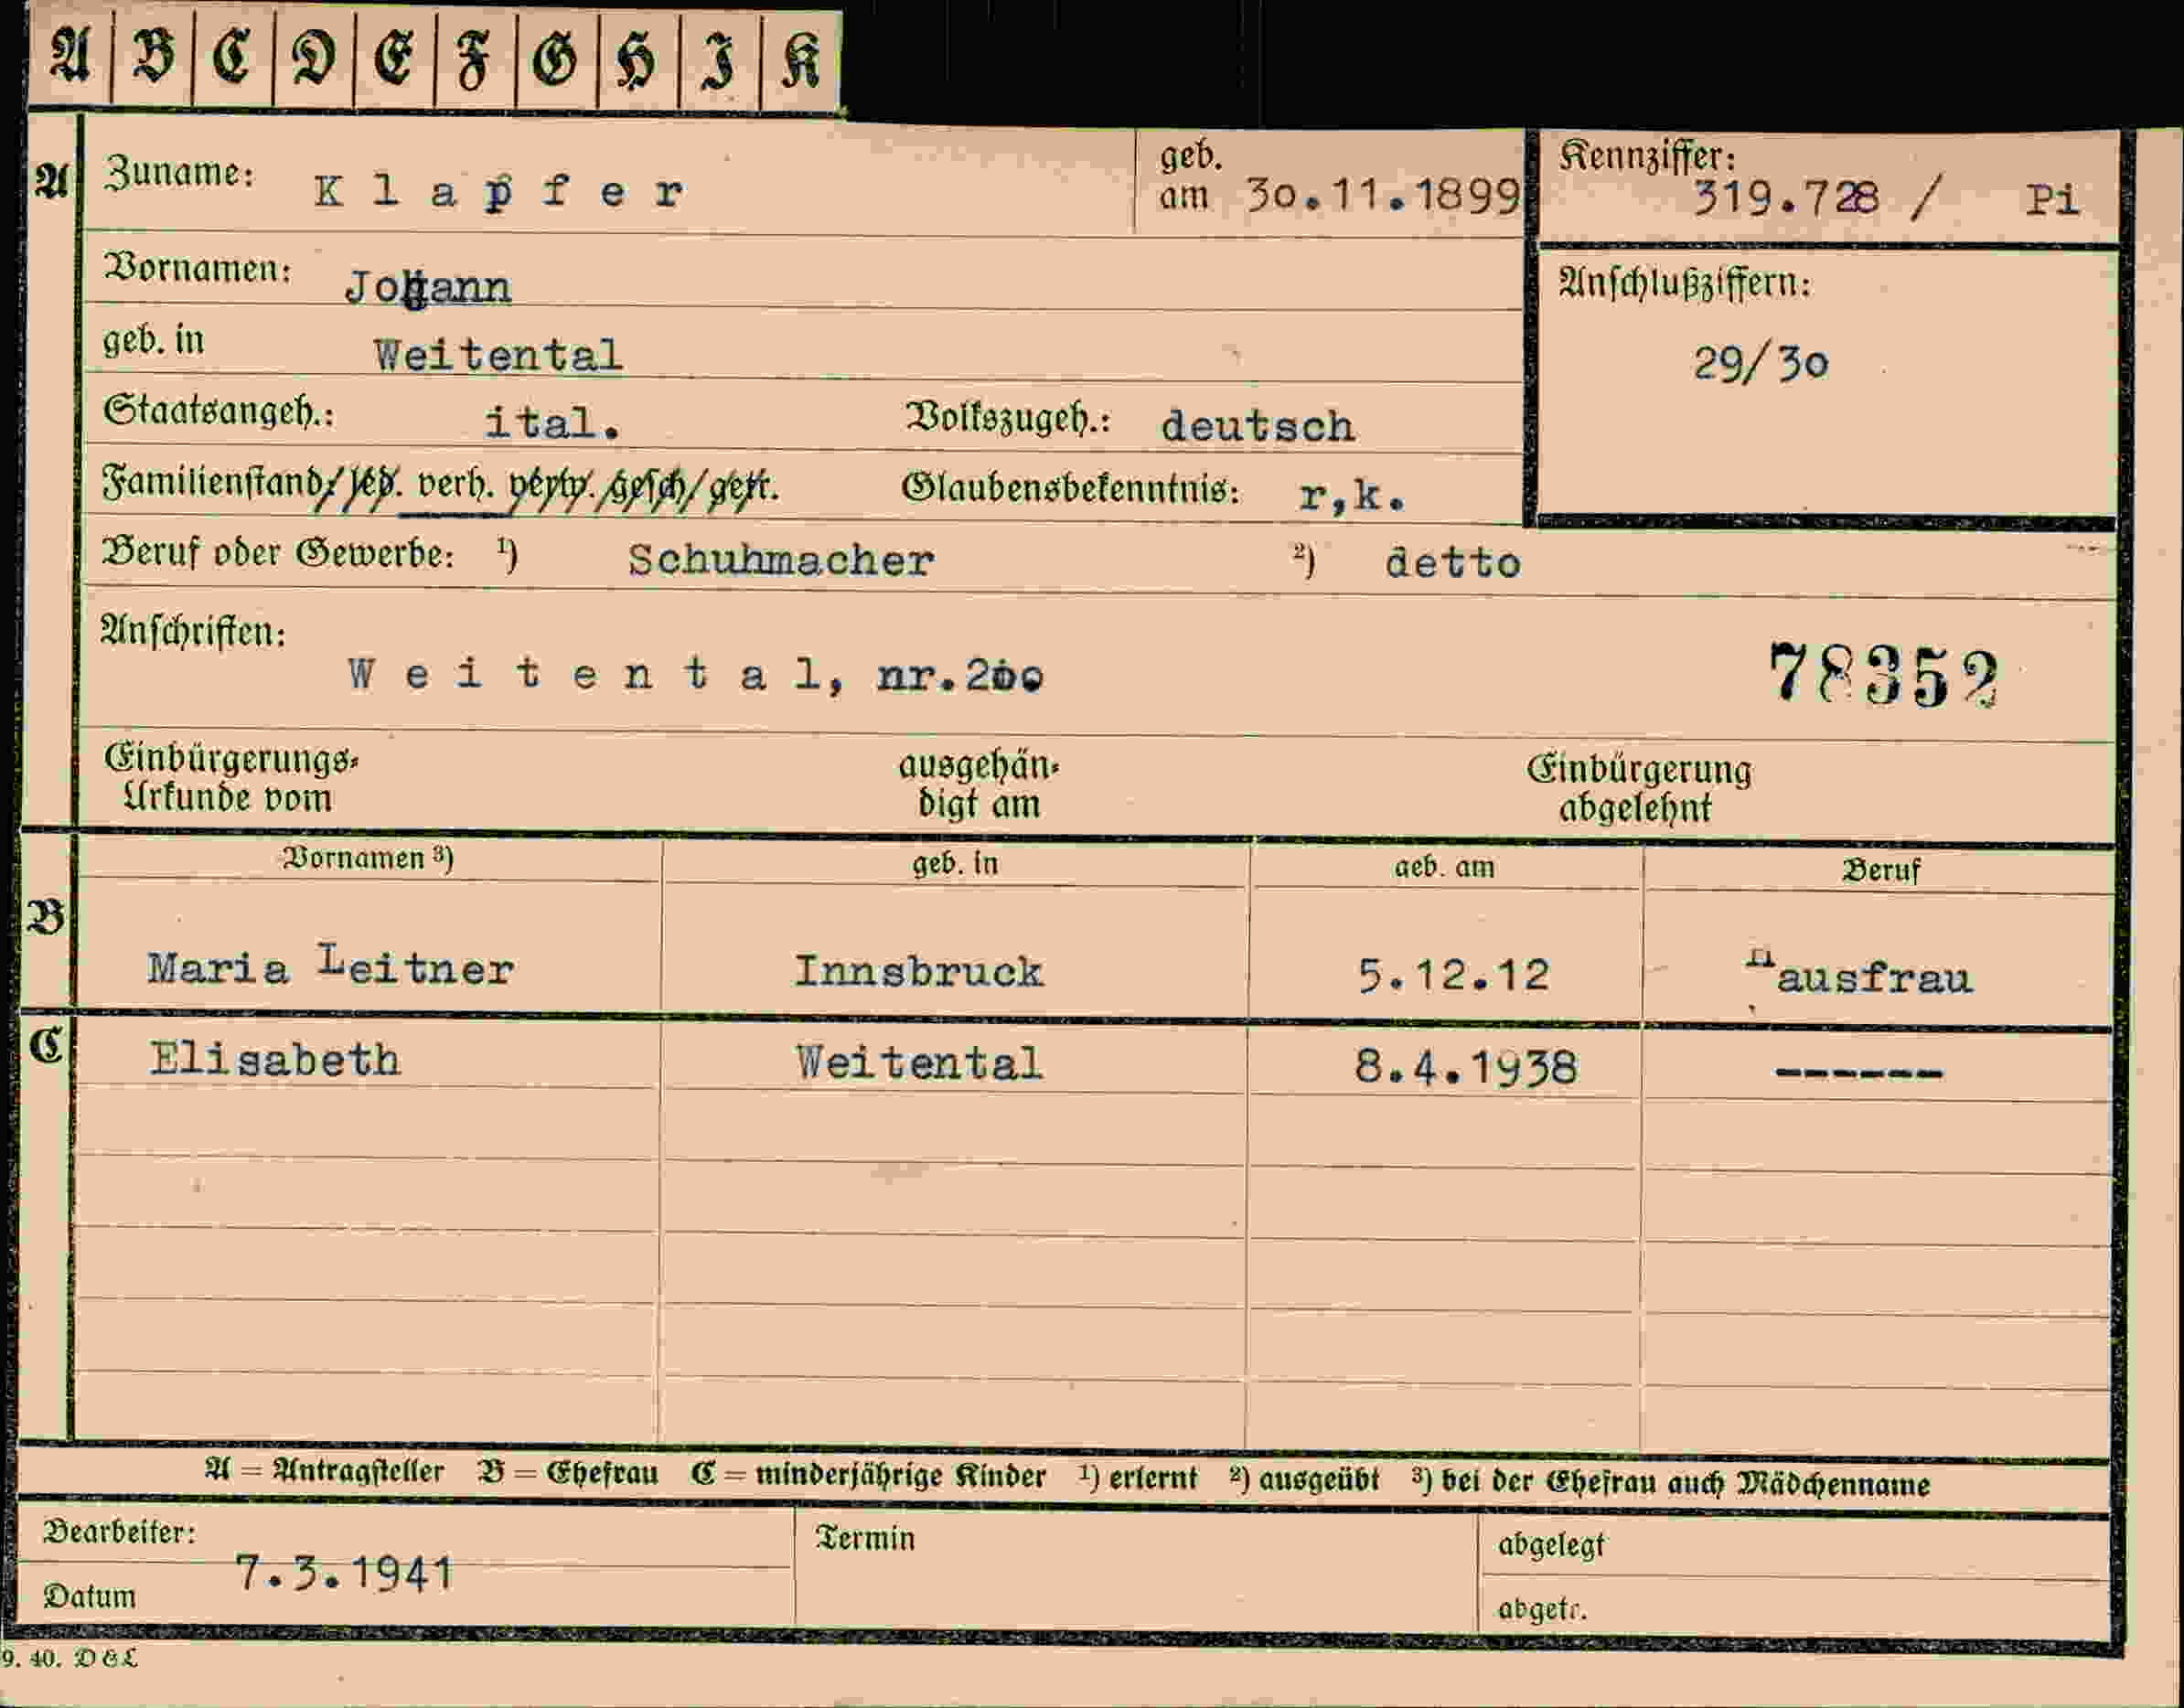 A B C D E F G H I K
A Zuname: Klapfer geb. am 30.11.1899 Kennziffer: 319.728 / Pi
Vornamen: Johann Anschlußziffern:
geb. in Weitental 29/30
Staatsangeh.: ital. Volkszugeh.: deutsch
Familienstand: led. verh. verw. gesch. getr. Glaubensbekenntnis: r,k.
Beruf oder Gewerbe: ¹) Schuhmacher ²) detto
Anschriften:
Weitental, nr.200 78352
Einbürgerungs- ausgehän- Einbürgerung
Urkunde vom digt am abgelehnt
Vornamen ³) geb. in geb. am Beruf
B Maria Leitner Innsbruck 5.12.12 Hausfrau
C Elisabeth Weitental 8.4.1938 ------
A = Antragsteller B = Ehefrau C = minderjährige Kinder ¹) erlernt ²) ausgeübt ³) bei der Ehefrau auch Mädchenname
Bearbeiter: Termin abgelegt
7.3.1941
Datum abgetr.
9. 40. D&L